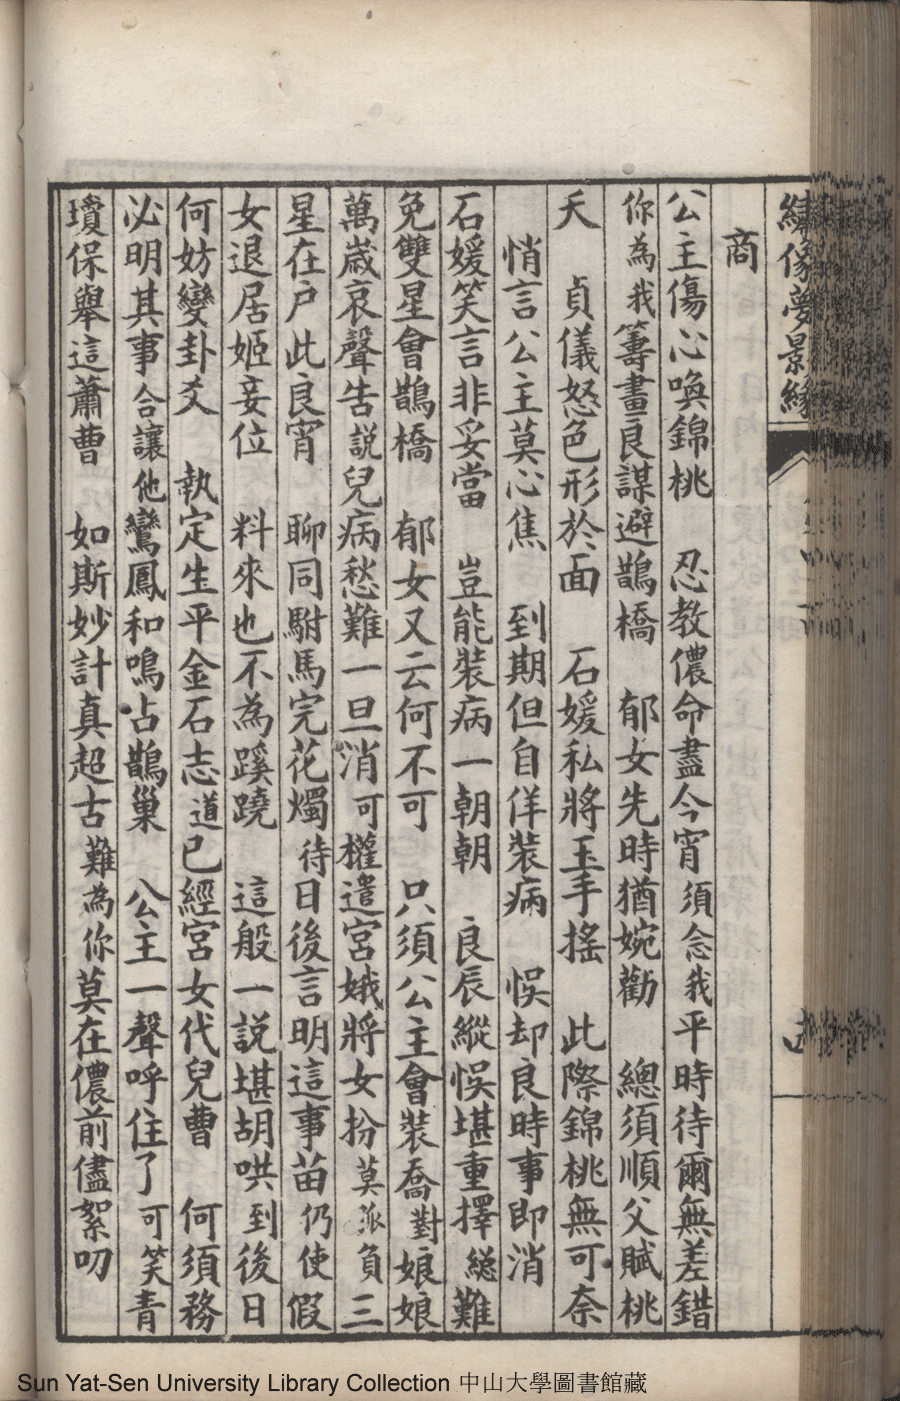 繡像夢景緣
商
公主傷心喚錦桃　忍教儂命盡今宵須念我平時待爾無差錯
你為我籌畫良謀避鵲橋　郁女先時猶婉勸　總須順父賦桃
夭　貞儀怒色形於面　石媛私將玉手搖　此際錦桃無可奈
悄言公主莫心焦　到期但自佯裝病　悞却良時事即消
石媛笑言非妥當　豈能裝病一朝朝　良辰縱悞堪重擇縂難
免雙星會鵲橋　郁女又云何不可　只須公主會裝喬對娘娘
萬歲哀聲告說兒病愁難一旦消可權遣宮娥將女扮莫孤負三
星在戶此良宵　聊同駙馬完花燭待日後言明這事苗仍使假
女退居姬妾位　料來也不為蹊蹺　這般一說堪胡哄到後日
何妨變卦爻　執定生平金石志道已經宮女代兒曹　何須務
必明其事合讓他鸞鳳和鳴占鵲巢　公主一聲呼住了可笑青
瓊保舉這蕭曹　如斯妙計真超古難為你莫在儂前儘絮叨
Sun Yat-Sen University Library Collection 中山大學圖書館藏